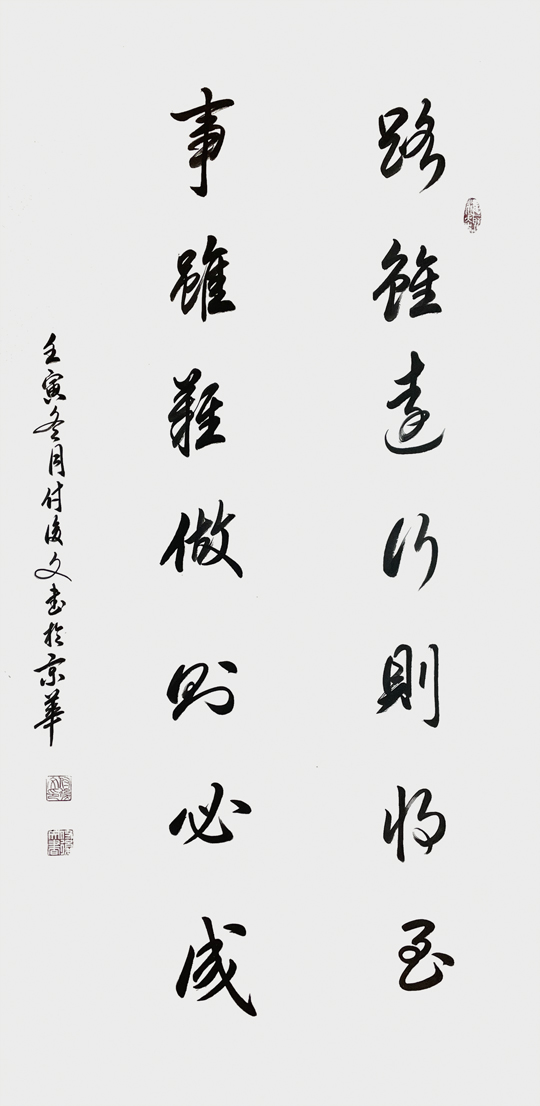 路雖遠行則將至
事雖難做則必成
壬寅冬月付俊文书於京華